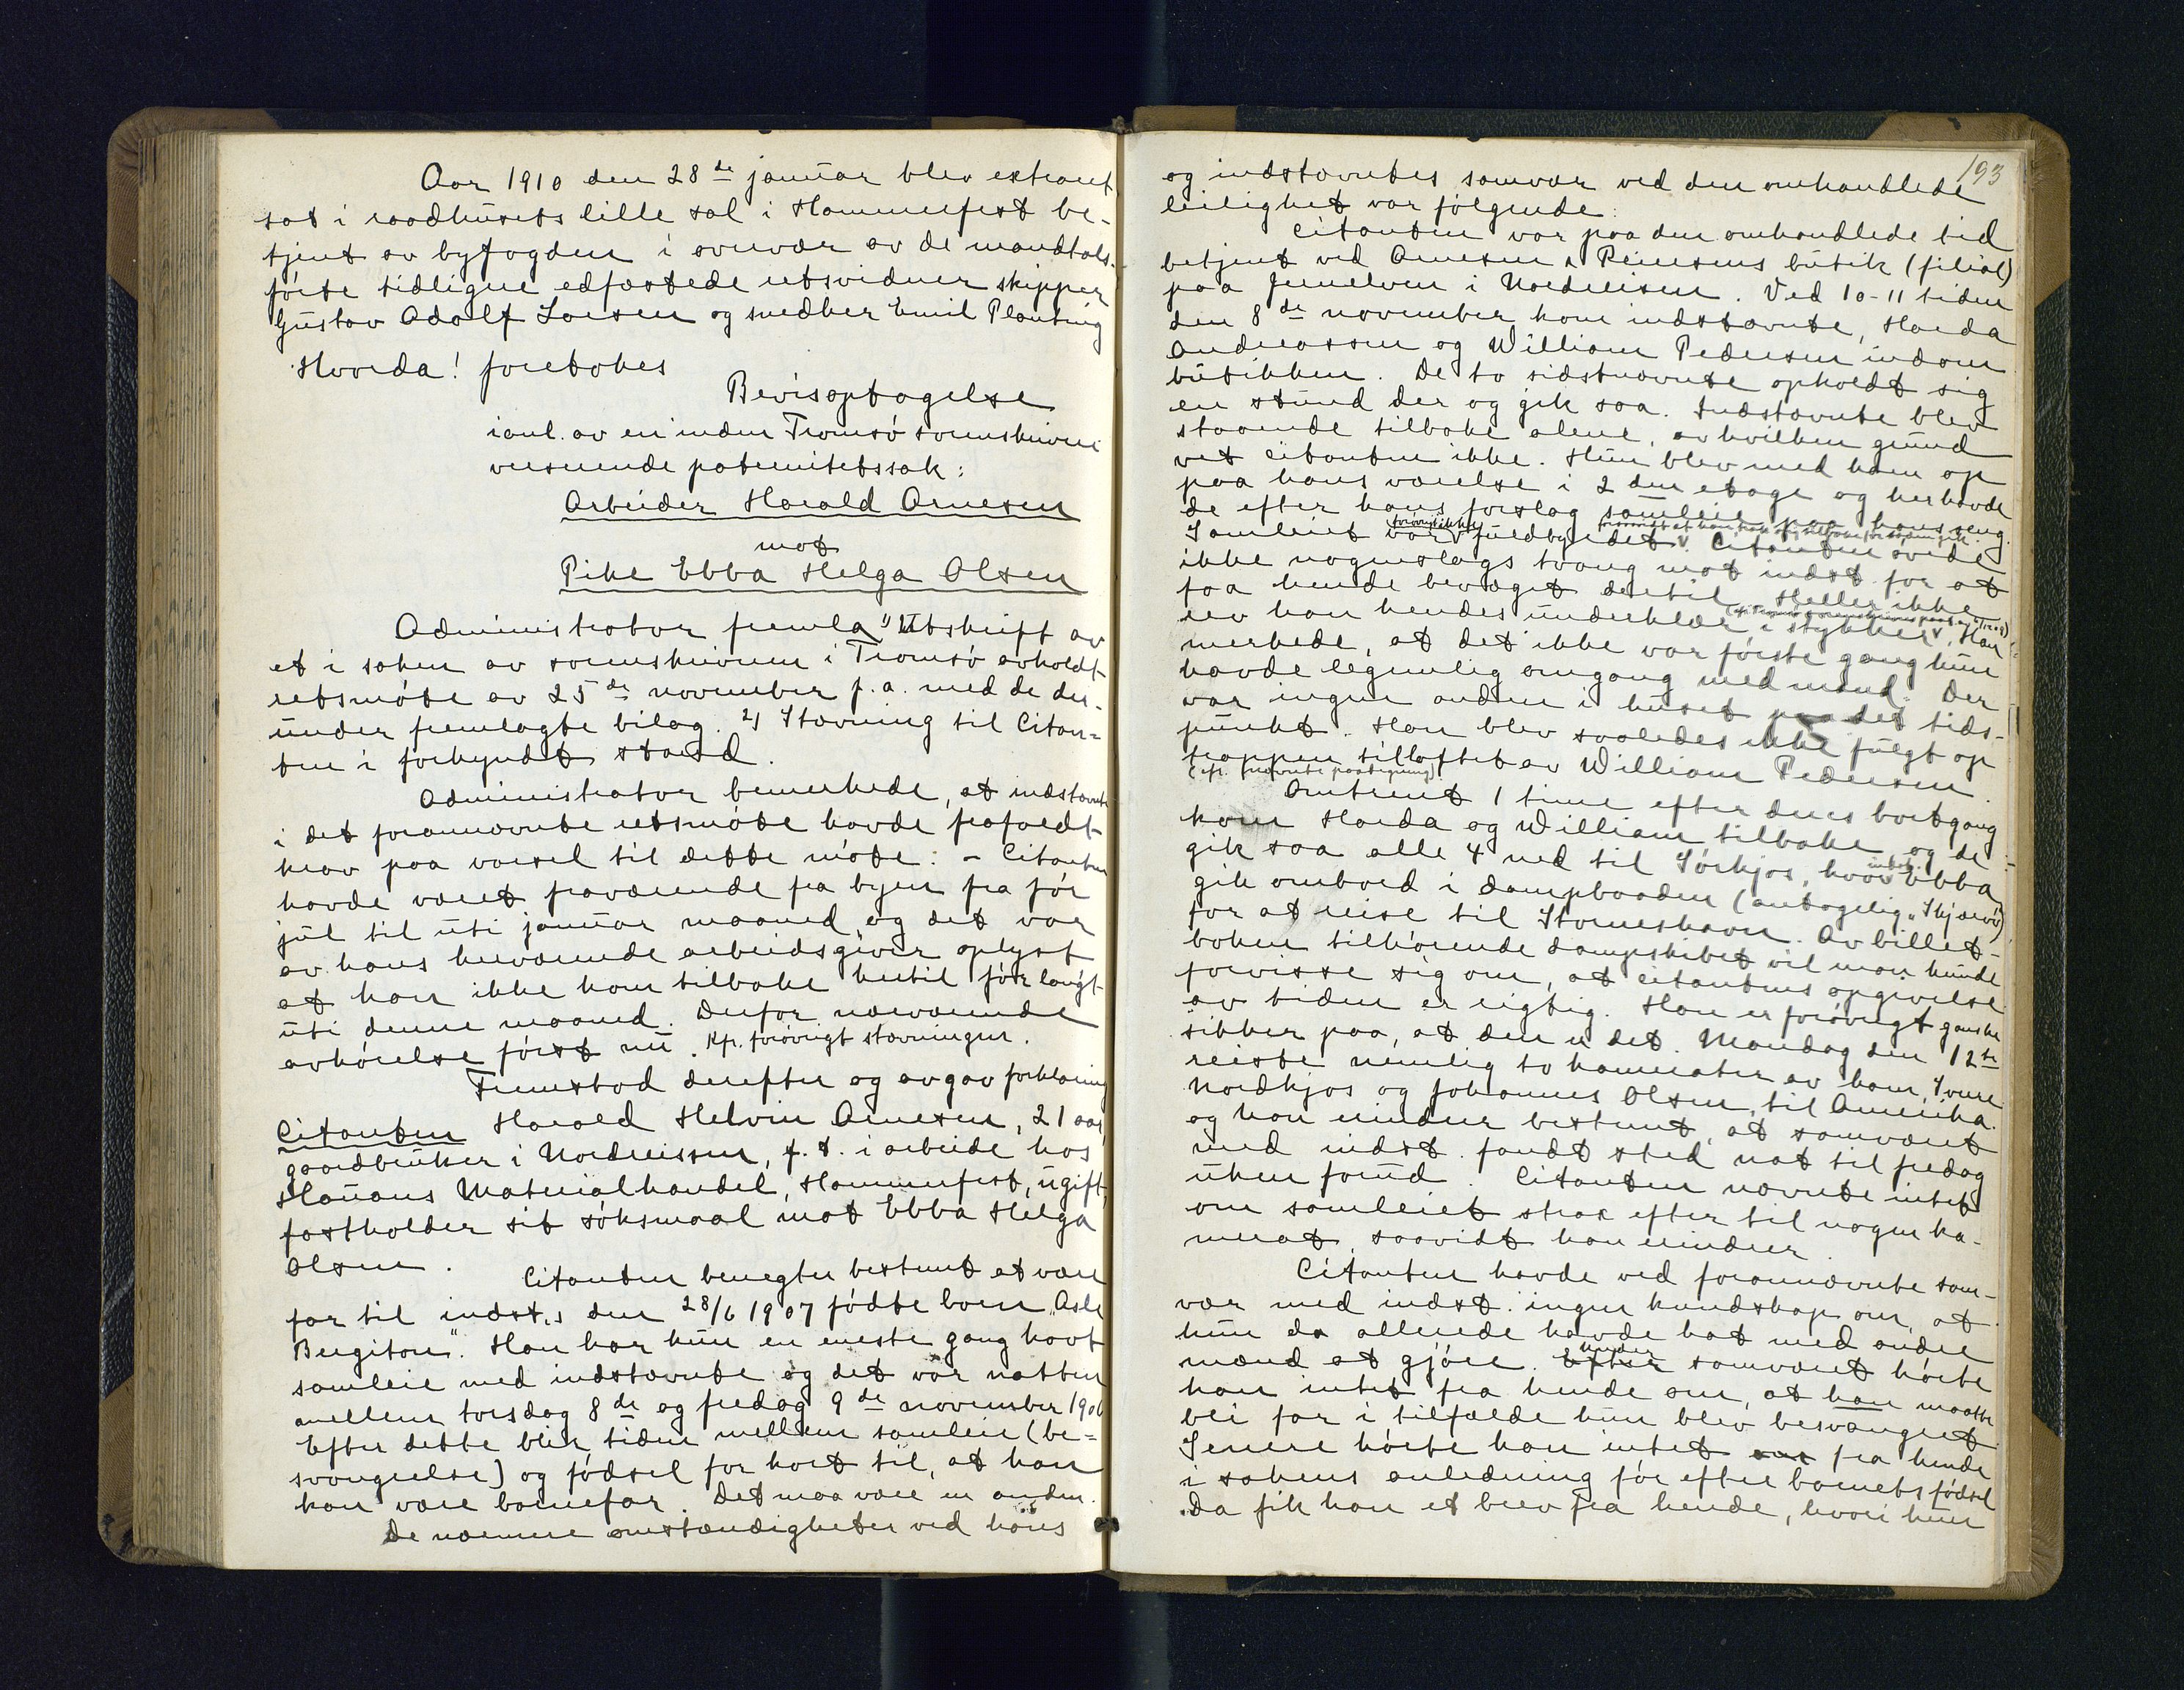 Aar 1910 den 28de januar blev extraret
sat i raadhusets lille sal i Hammerfest be-
tjent av byfogden i overvær av de mandtals-
førte tidligere edfæstede retsvidner skipper
Gustav Adolf Larsen og snedker Emil Plantnig
Hvorda! foretokes
Bevisoptagelse
i anl. av en inden Tromsø sorenskriveri
verserende paternitetssak:
Arbeider Harald Arnesen
mot
Pike Ebba Helga Olsen
Administrator fremla 1) Utskrift av
et i saken av sorenskriveren i Tromsø avholdt
retsmøte av 25de november f.a. med de der-
under fremlagte bilag. 2) Stævning til Citan-
ten i forkyndt stand.
Administrator bemerkede, at indstævnte
i det forannævnte retsmøte havde frafaldt
krav paa varsel til dette møte: - Citanten
havde været fraværende fra byen fra før
jul til uti januar maaned og det var
av hans herværende arbeidsgiver oplyst
at han ikke kom tilbake hertil før langt
uti denne maaned. Derfor nærværende
avhørelse først nu. Kfr. forøvrigt stævningen.
Fremstod derefter og avgav forklaring
Citanten Harald Helvin Arnesen, 21 aar,
gaardbruker i Nordreissen, f.t. i arbeide hos
Hauans Materialhandel, Hammerfest, ugift,
fastholder sit søksmaal mot Ebba Helga
Olsen.
Citanten benegter bestemt at være
far til indst.s den 28/6 1907 fødte barn "Asle
Bergiton". Han har kun en eneste gang havt
samleie med indstævnte og det var natten
mellem torsdag 8de og fredag 9de november 1906
Efter dette blir tiden mellem samleie (be-
svangrelse) og fødsel for kort til, at han
kan være barnefar. Det maa være en anden.
De nærmere omstændigheter ved hans
193
og indstævntes samvær ved den omhandlede
leilighet var følgende:
Citanten var paa den omhandlede tid
betjent ved Arnesen & Reiersens butik (filial)
paa Jernelven i Nordreisen. Ved 10-11 tiden
den 8de november kom indstævnte, Harda
Andreassen og William Pedersen indom
butikken. De to sidstnævnte opholdt sig
en stund der og gik saa. Indstævnte blev
staaende tilbake alene, av hvilken grund
vet citanten ikke. Hun blev med ham op
paa hans værelse i 2den etage og her havde
de efter hans forslag samleie paa hans seng.
forøvrigt ikke
Samleiet var fuldbyrdet. Citanten øvede
ikke nogenslags tvang mot indst. for at
faa hende bevæget dertil. Heller ikke
rev han hendes underklær i stykker. Han
merkede, at det ikke var første gang hun
havde legemlig omgang med mand. Der
var ingen anden i huset paa det tids-
punkt. Han blev saaledes ikke fulgt op
trappen til loftet av William Pedersen.
(cfr. fornævnte paategning)
Omtrent 1 time efter deres bortgang
kom Harda og William tilbake og de
gik saa alle 4 ned til Sørkjos, hvor Ebba
gik ombord i dampbaaden (antagelig "Skjærvø")
for at reise til Storneshavn. Av billet-
boken tilhørende dampskibet vil man kunde
forvisse sig om, at citantens opgivelse
av tiden er rigtig. Han er forøvrigt ganske
sikker paa, at den er det. Mandag den 12te
reiste nemlig to kamerater av ham, Sverre
Nordkjos og Johannes Olsen, til Amerika
og han erindrer bestemt, at samværet
med indst. fandt sted nat til fredag
uken forud. Citanten nævnte intet
om samleiet strax efter til nogen ka-
merat, saavidt han erindrer.
Citanten havde ved forannævnte sam-
vær med indst. ingen kundskap om, at
hun da allerede havde hat med andre
under
mænd at gjøre. Efter samværet hørte
han intet fra hende om, at han maatte
bli far i tilfælde hun blev besvangret.
Senere hørte han intet fra hende
i sakens anledning før efter barnets fødsel
Da fik han et brev fra hende, hvori hun